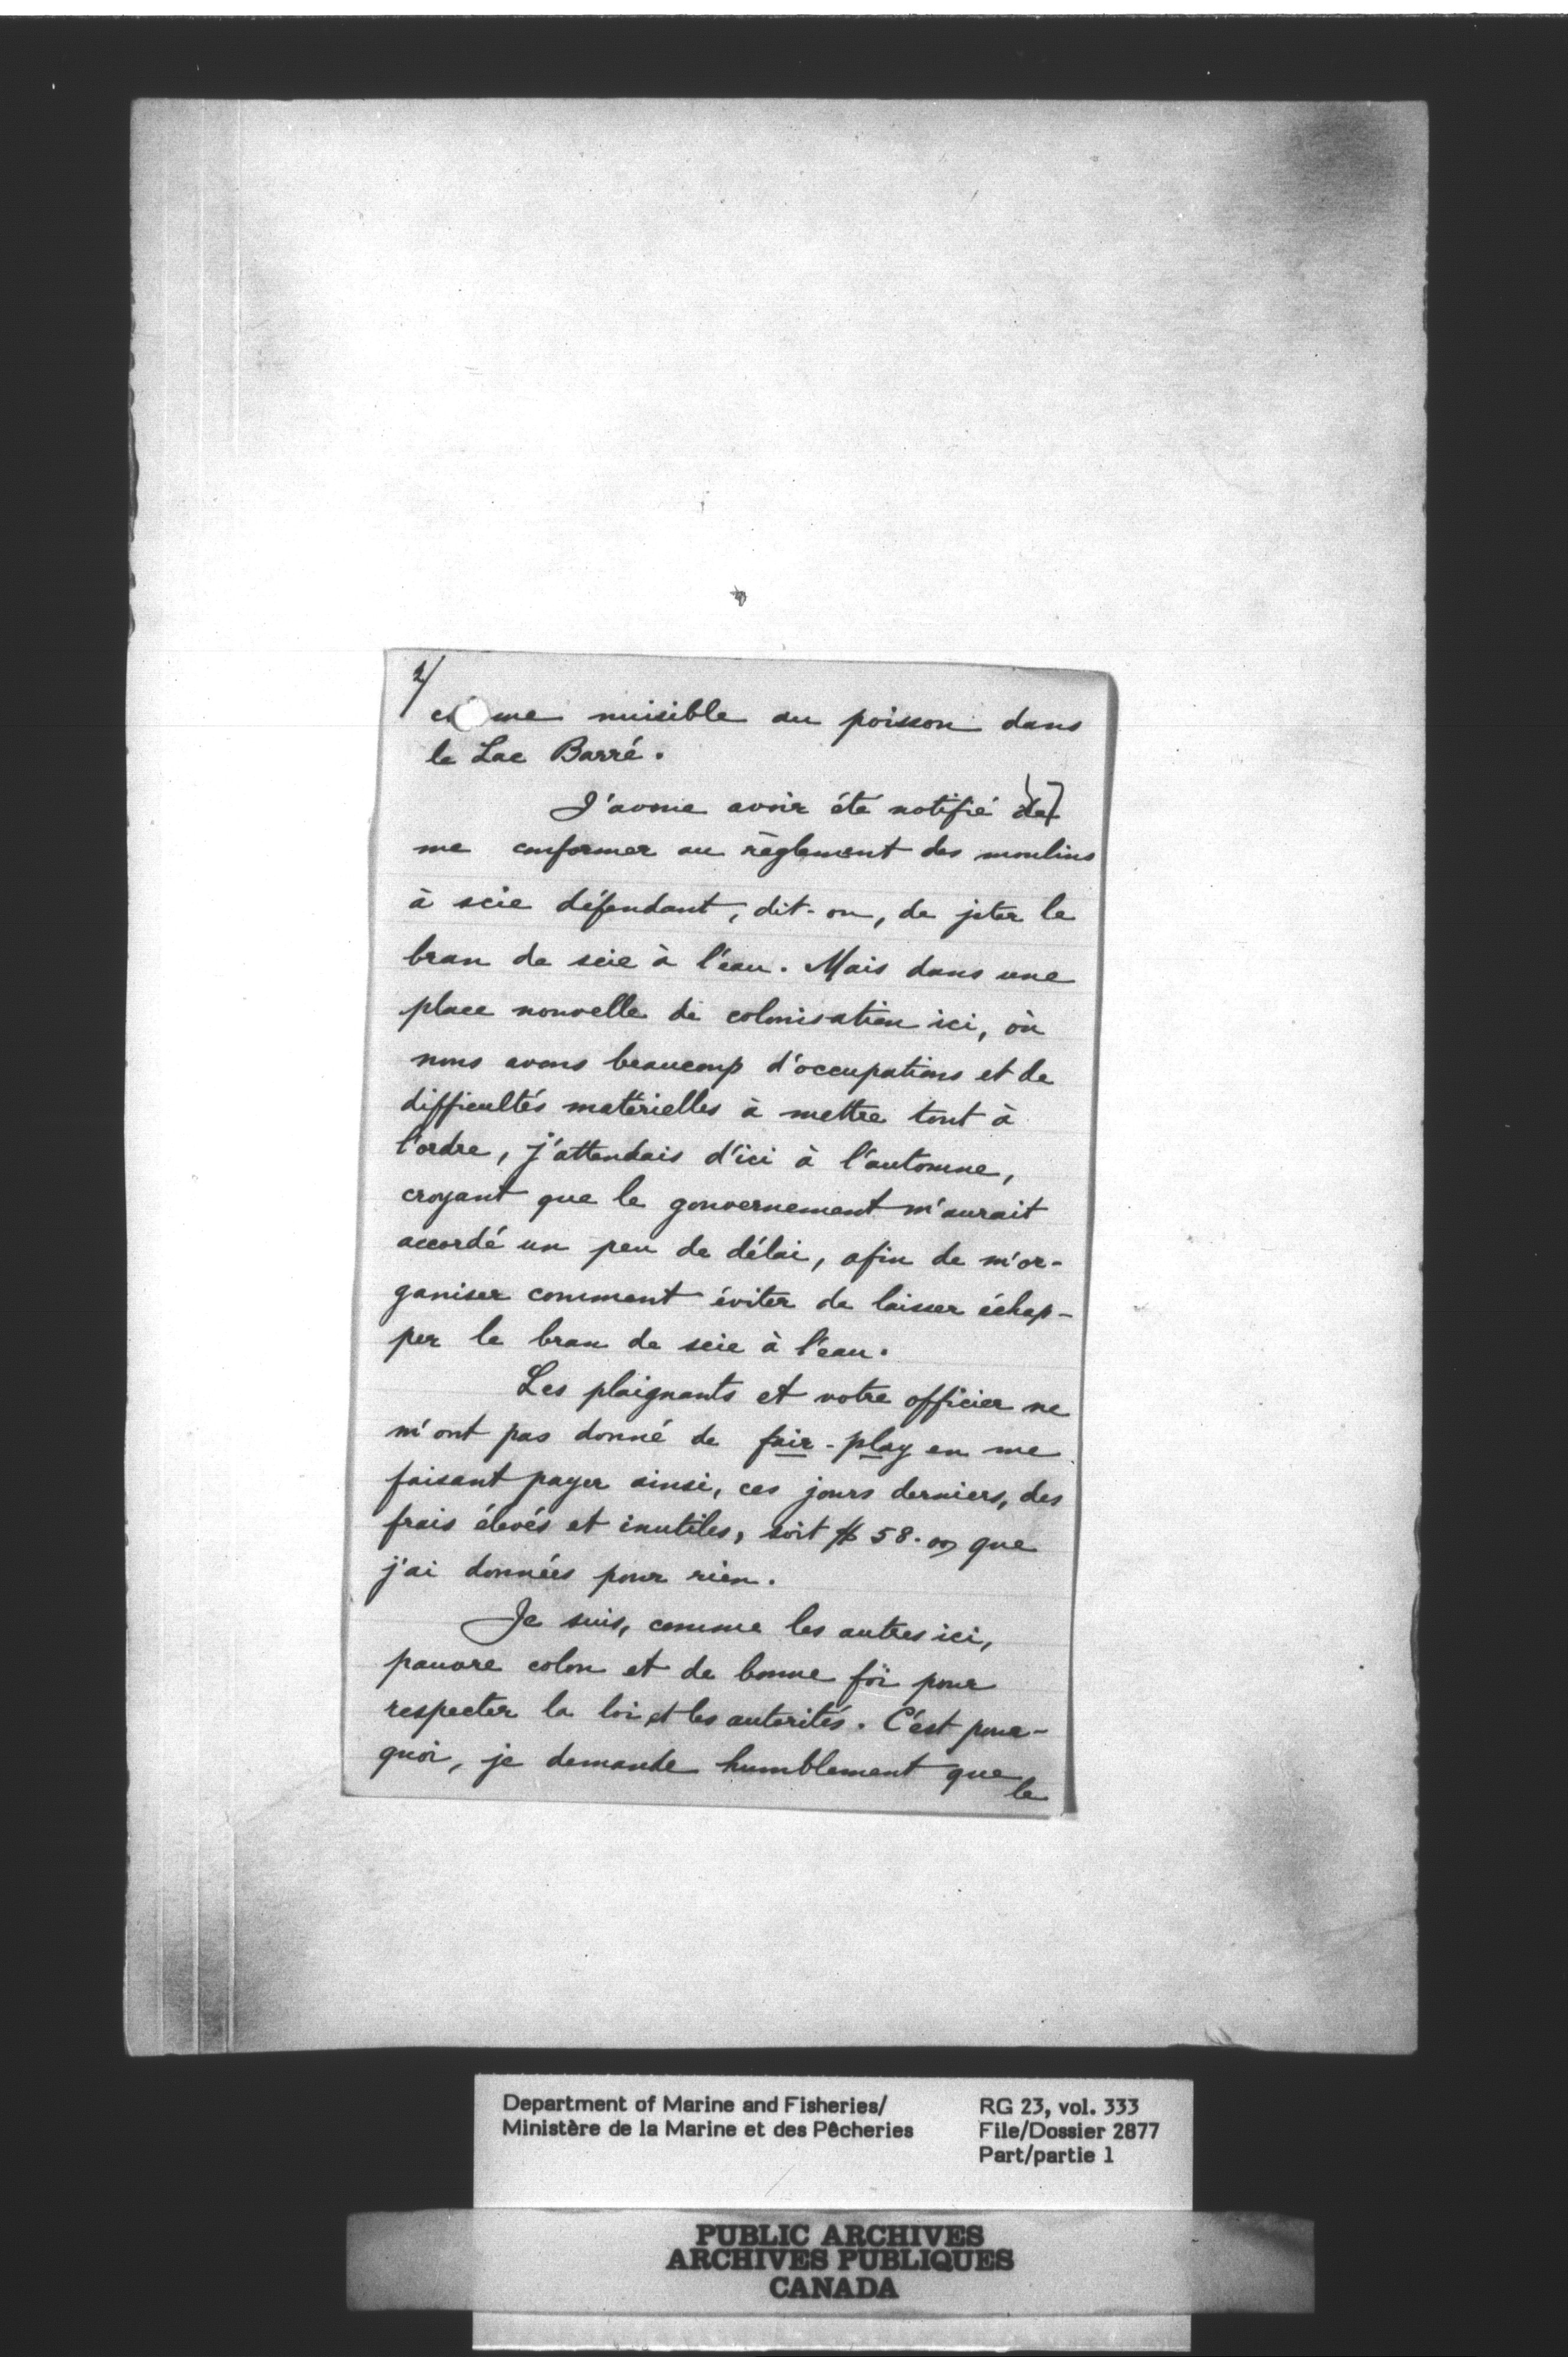 2/
comme nuisible au poisson dans
le Lac Barré.
J'avoue avoir été notifié de
me conformer au règlement des moulins
à scie défendant, dit-on, de jeter le
bran de scie à l'eau. Mais dans une
place nouvelle de colonisation ici, où
nous avons beaucoup d'occupations et de
difficultés matérielles à mettre tout à
l'ordre, j'attendais d'ici à l'automne,
croyant que le gouvernement m'aurait
accordé un peu de délai, afin de m'or-
ganiser comment éviter de laisser échap-
per le bran de scie à l'eau.
Les plaignants et votre officier ne
m'ont pas donné de fair-play en me
faisant payer ainsi, ces jours derniers, des
frais élevés et inutiles, soit $58.00 que
j'ai données pour rien.
Je suis, comme les autres ici,
pauvre colon et de bonne foi pour
respecter la loi et les autorités. C'est pour-
quoi, je demande humblement que
le
Department of Marine and Fisheries/
Ministère de la Marine et des Pêcheries
RG 23, vol. 333
File/Dossier 2877
Part/partie 1
PUBLIC ARCHIVES
ARCHIVES PUBLIQUES
CANADA